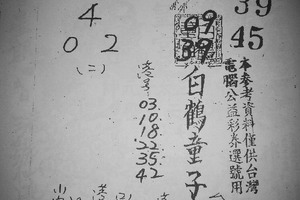 39
45
本參考資料僅供台灣
電腦公益彩券選號用
09
39
白鶴童子
4
0 2
(二)
03.
10.
18.
22.
35.
42